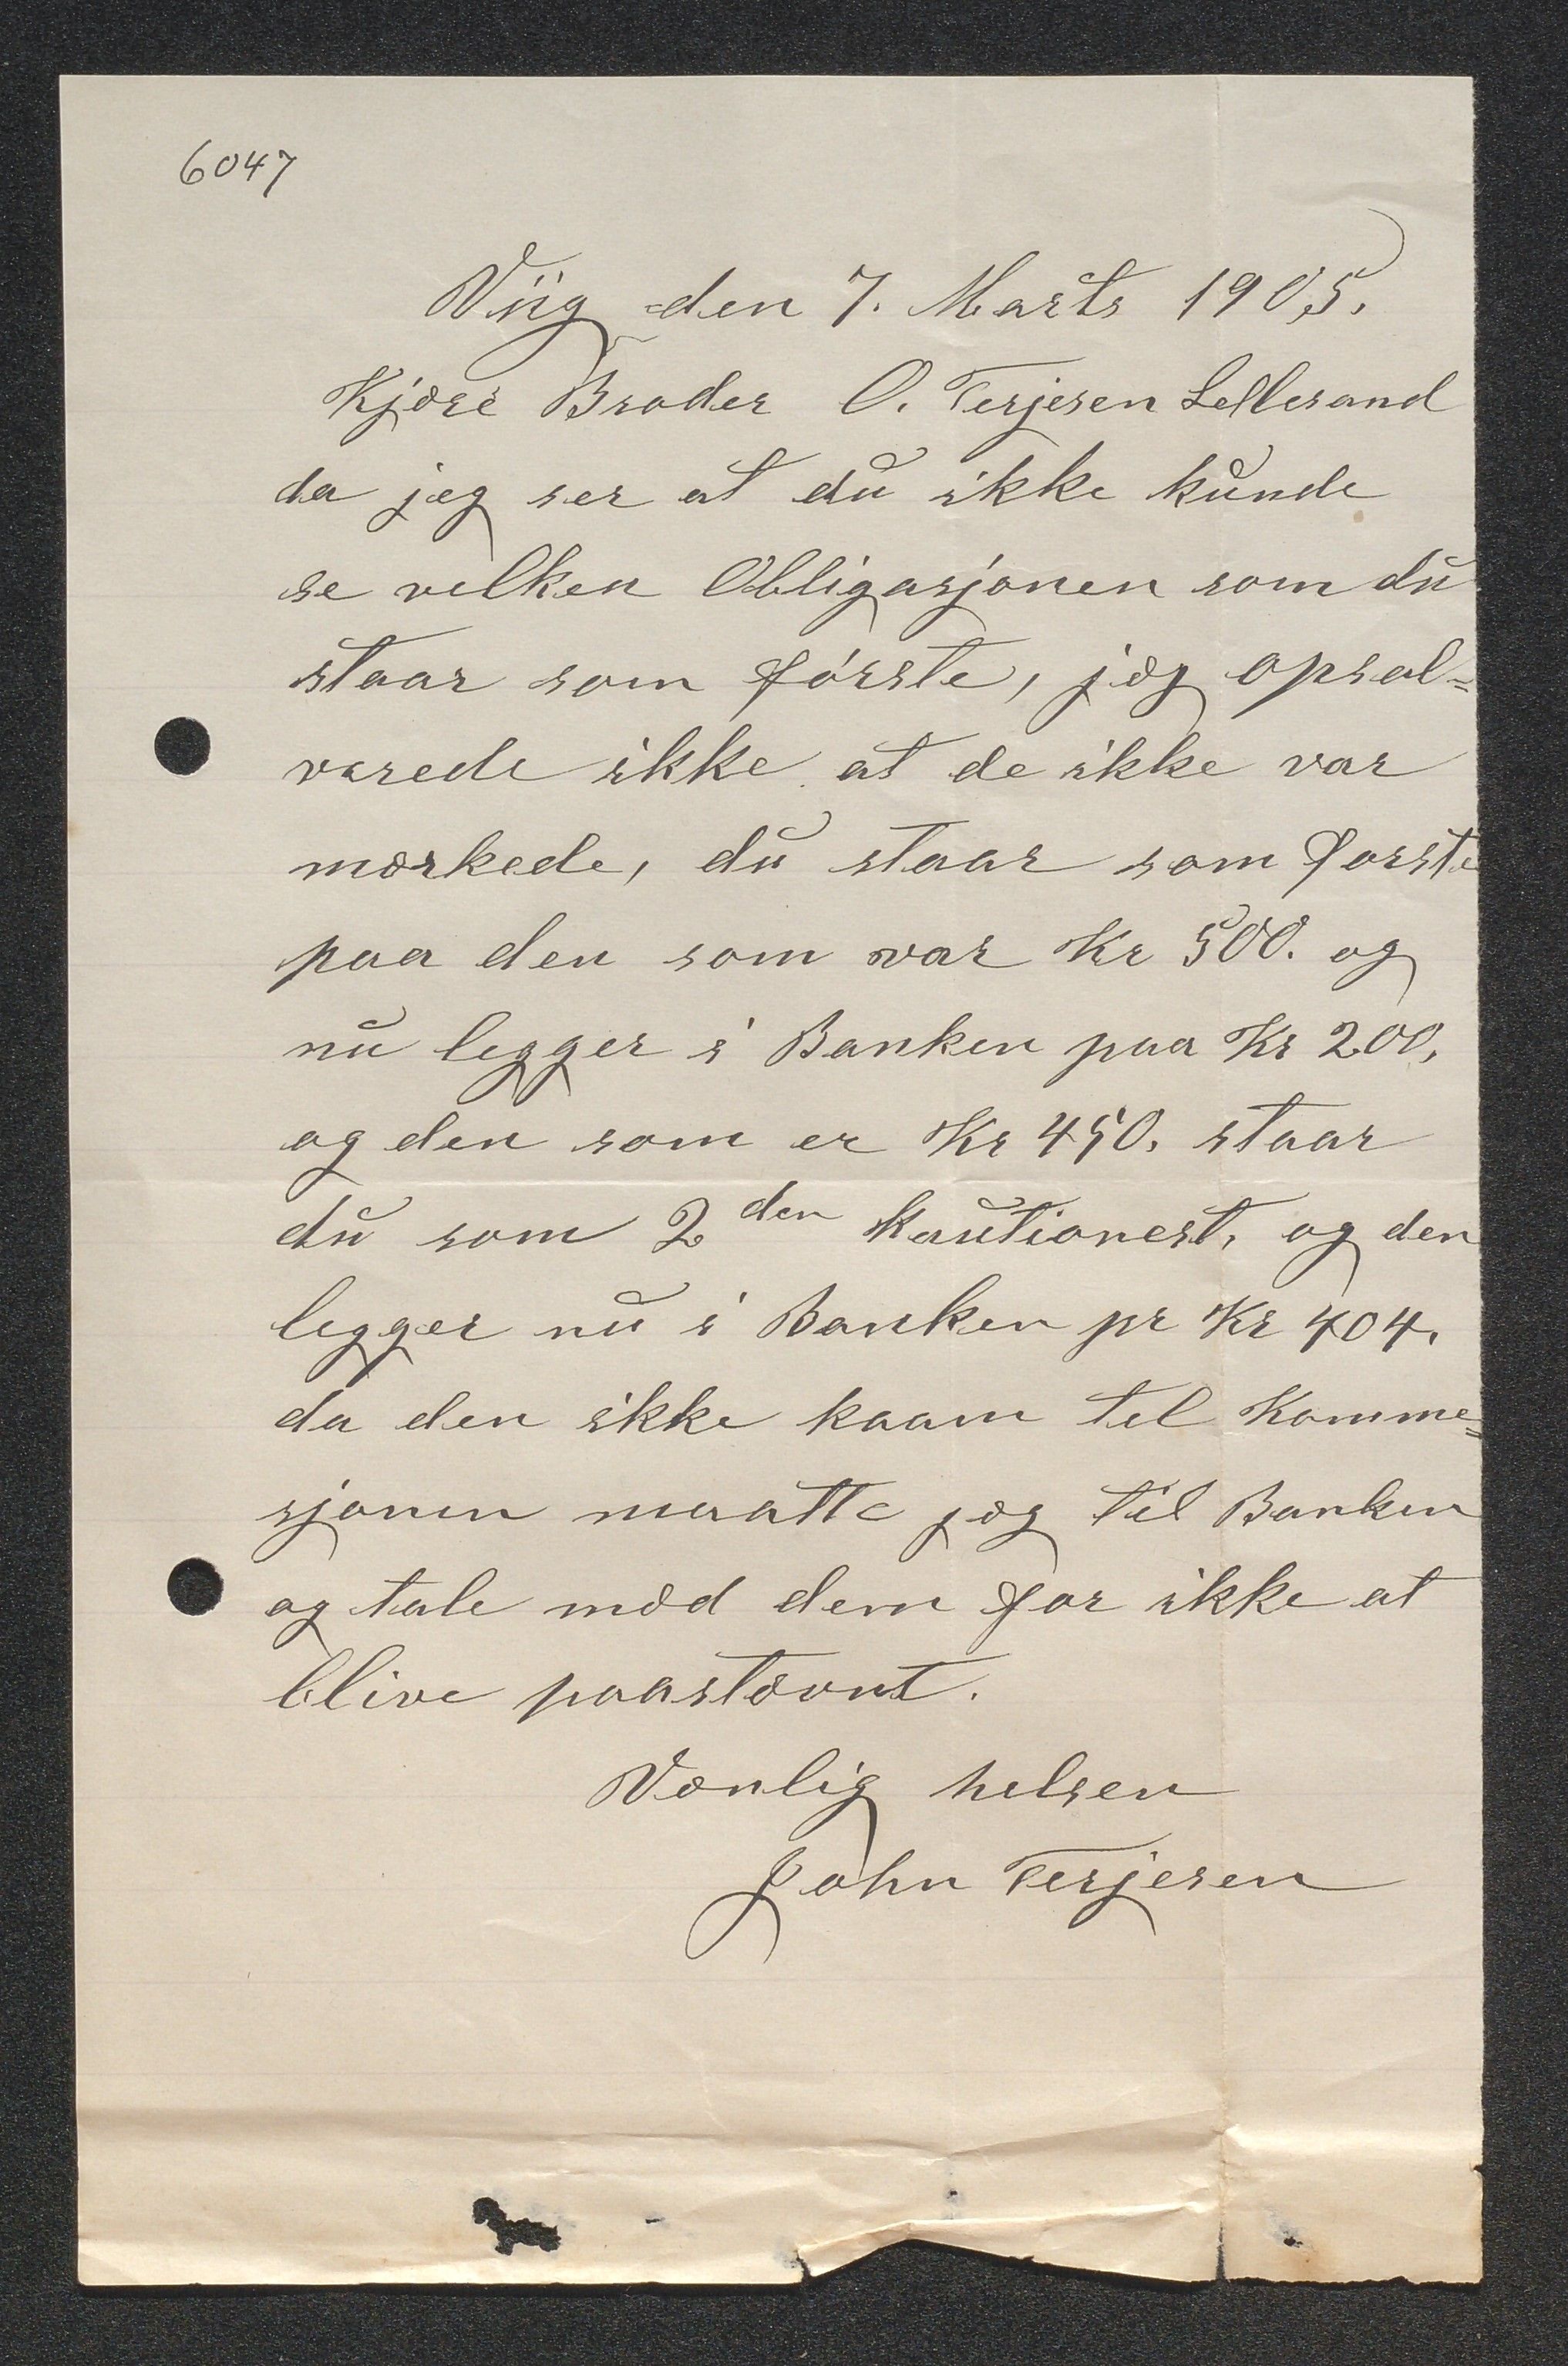 6047
Viig den 7. Marts 1905.
Kjære Broder O. Terjesen Lellesand
da jeg ser at du ikke kunde
se vilken Obligasjonen som du
staar som første, jæg opsal=
verede ikke at de ikke var
mærkede, du staar som først
paa den som var Kr 500. og
nu legger i Banken paa Kr 200,
og den som er Kr 450. staar
du som 2den kautionest, og den
legger nu i Banken pr Kr 404.
da den ikke kaam tel Komme=
sjonen maatte jæg til Banken
og tale mæd dem for ikke at
blive paastævnt.
Vænlig helsen
John Terjesen